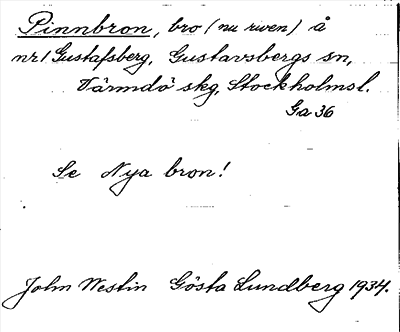 Pinnbron, bro (nu riven) å
nr 1 Gustafsberg, Gustavsbergs sn,
Värmdö skg, Stockholms l.
Ga 36
Se Nya bron!
John Westin Gösta Lundberg 1934.